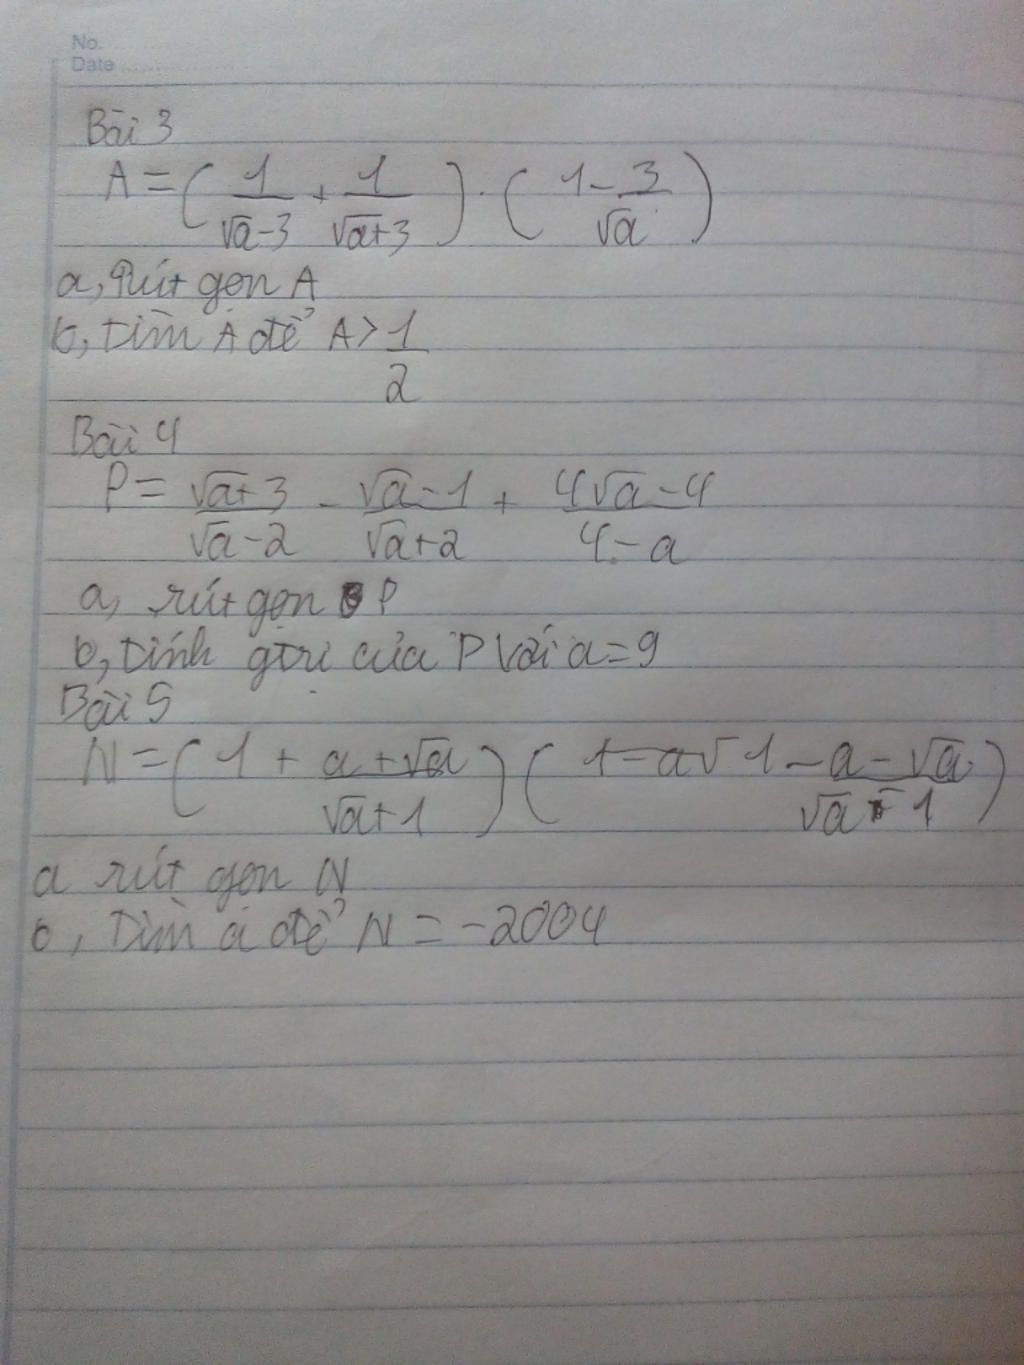 No.
Date
Bài 3
A = ( 1/(√a-3) + 1/(√a+3) ) . ( 1 - 3/√a )
a, Rút gọn A
b, tìm A để A > 1/2
Bài 4
P = (√a+3)/(√a-2) - (√a-1)/(√a+2) + (4√a-4)/(4-a)
a, rút gọn P
b, tính gtri của P với a=9
Bài 5
N = ( 1 + (a+√a)/(√a+1) ) ( 1 - (a-√a)/(√a-1) )
a rút gọn N
b, tìm a để N = -2004